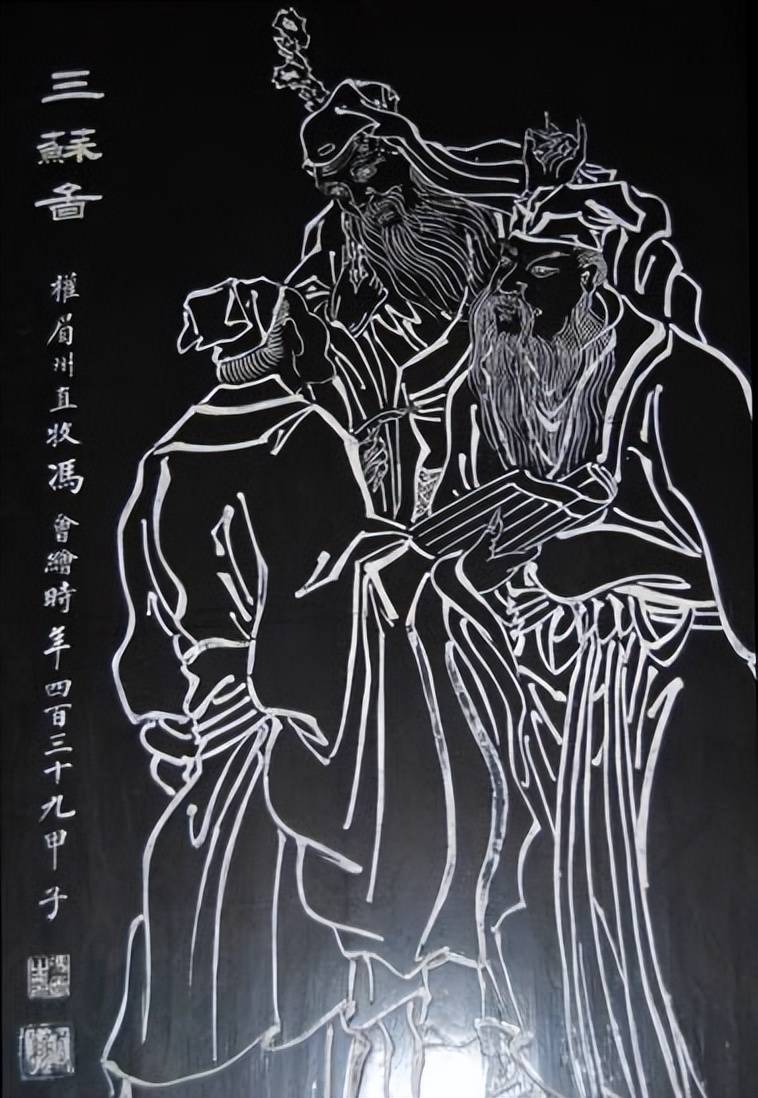 三蘇啚
權眉州直牧馮會繪時年四百三十九甲子